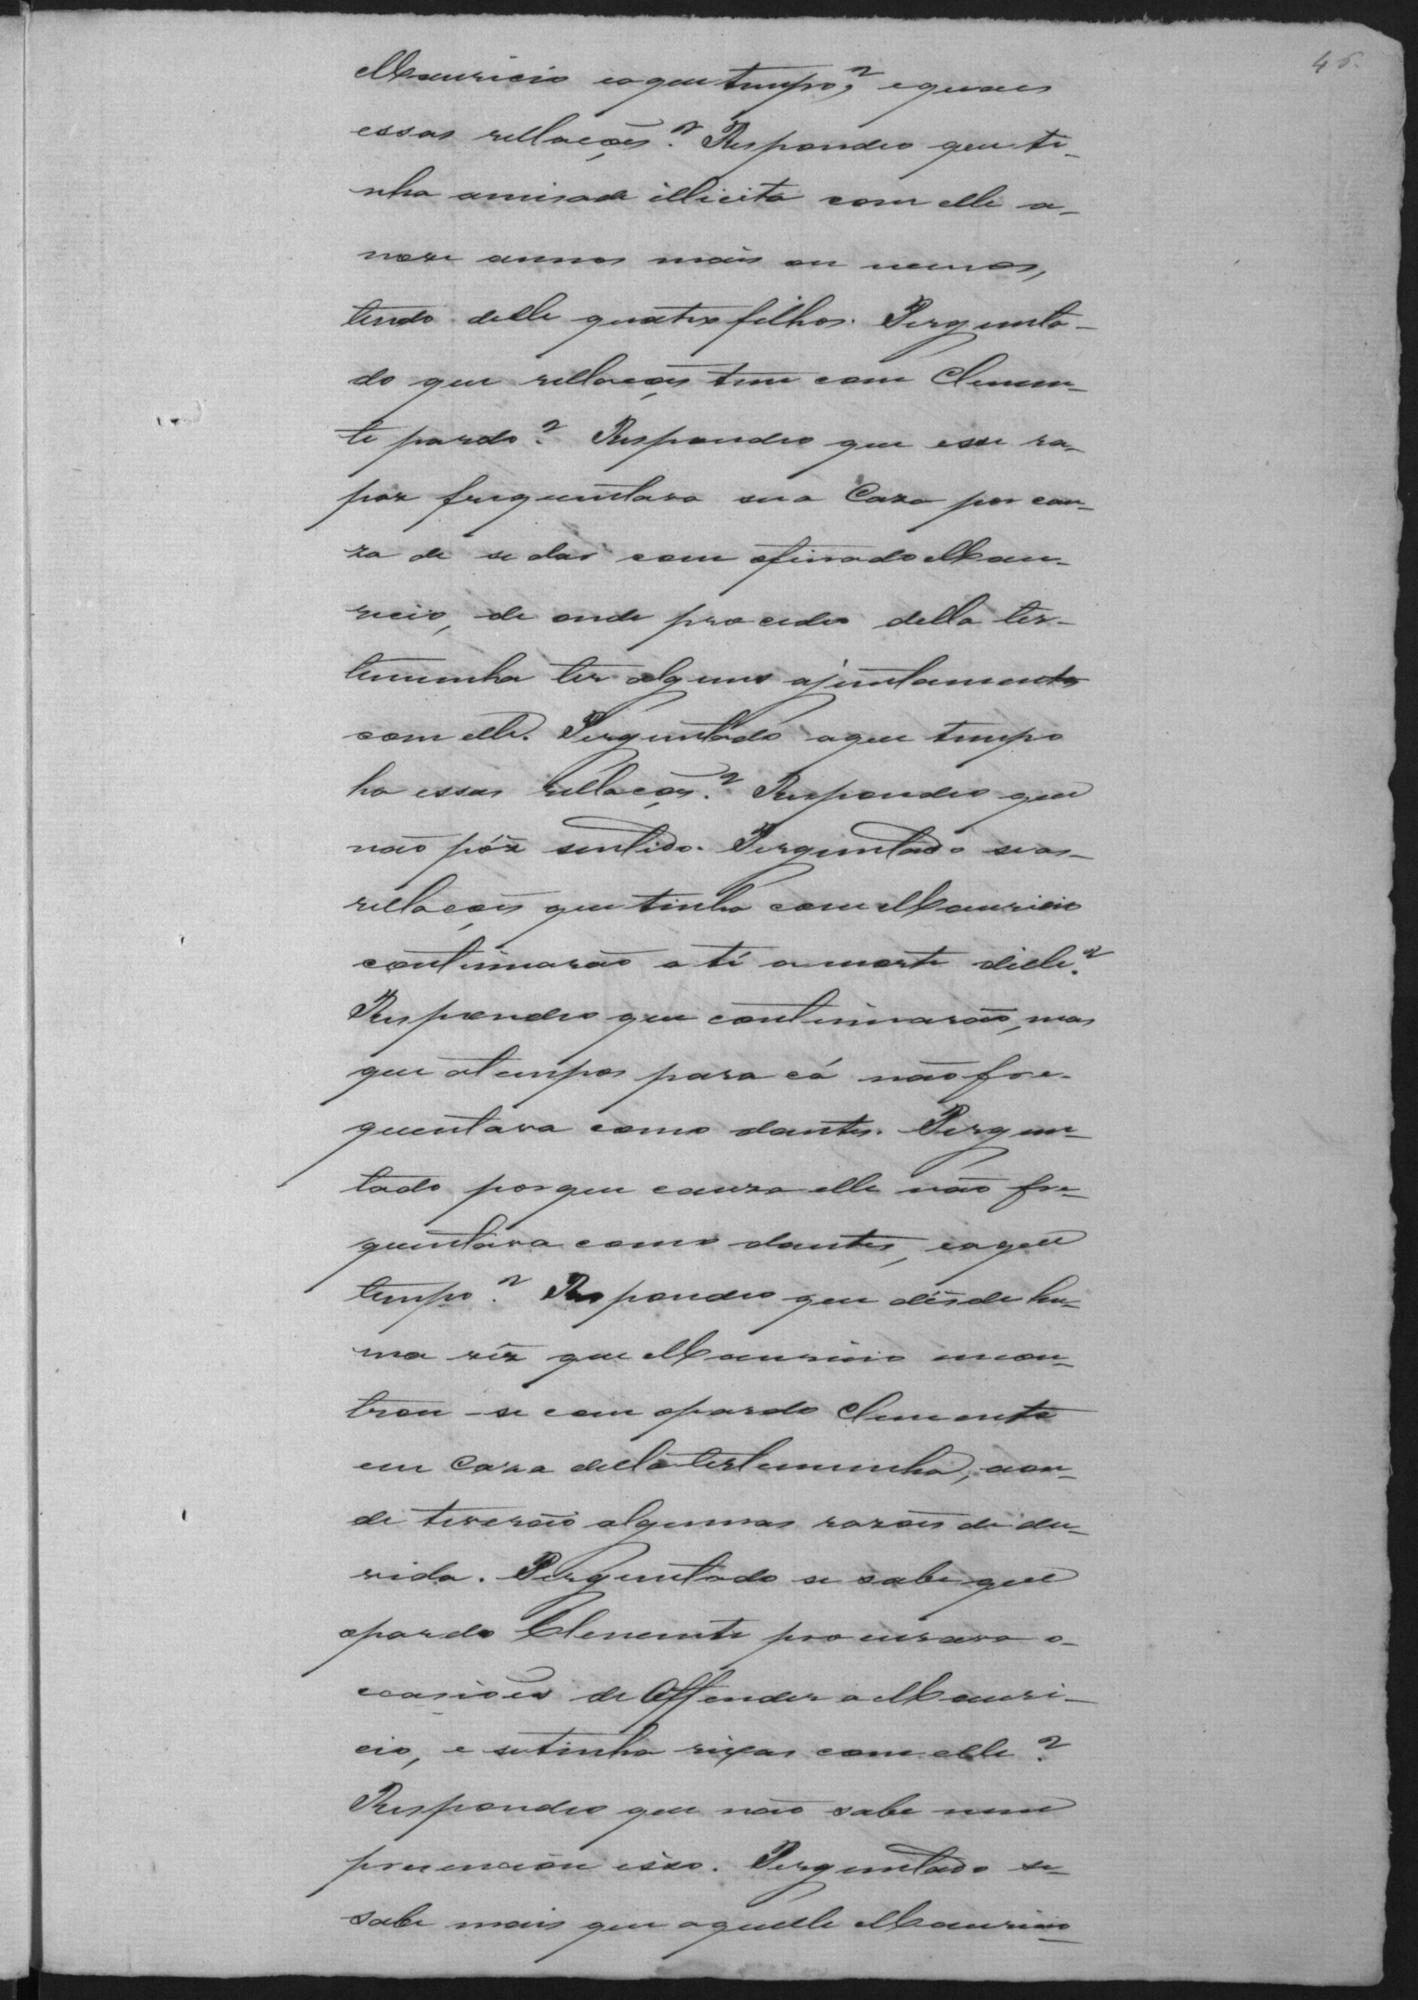 45.
Mauricio e a que tempo,? e quaes
essas rellações? Respondeo que ti-
nha amisade illicita com elle a-
nove annos mais ou menos,
tendo delle quatro filhos. Pergunta-
do que rellações tem com Clemen-
te pardo? Respondeo que esse ra-
paz frequentava sua Caza por cau-
za de se dar com o finado Mau-
ricio, de onde procedeo della tes-
temunha ter alguns ajuntamentos
com elle. Perguntado a que tempo
ha essas rellações? Respondeo que
não póz sentido. Perguntado se as
rellações que tinha com Mauricio
continuarão a té a morte delle?
Respondeo que continuarão, mas
que a tempos para cá não fre-
quentava como dantes. Pergun-
tado por que cauza elle não fre-
quentava como dantes, e a que
tempo? Respondeo que désde hu-
ma vêz que Mauricio incon-
trou-se com o pardo Clemente
em Caza della testemunha, aon-
de tiverão algumas razões de du-
vida. Perguntado se sabe que
o pardo Clemente procurava o-
ccasiões de Offender a Mauri-
cio, e se tinha rixas com elle?
Respondeo que não sabe nem
prezenciou isso. Perguntado se
sabe mais que aquelle Mauricio